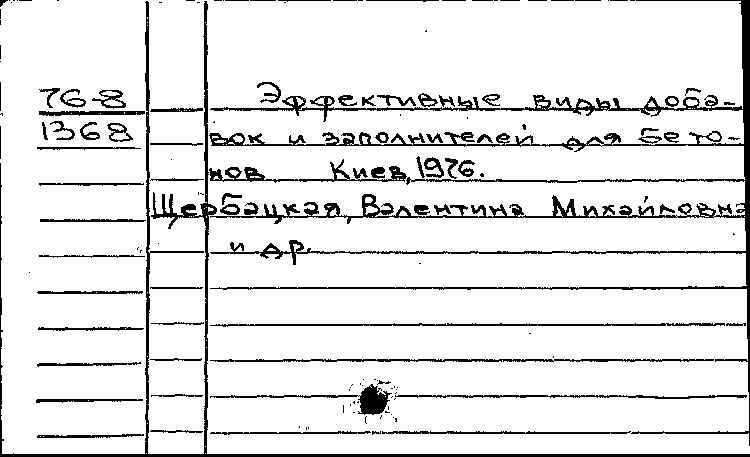 76-8
1368
Эффективные виды доба-
вок и заполнителей для бето-
нов Киев, 1976.
Щербацкая, Валентина Михайловна
и др.